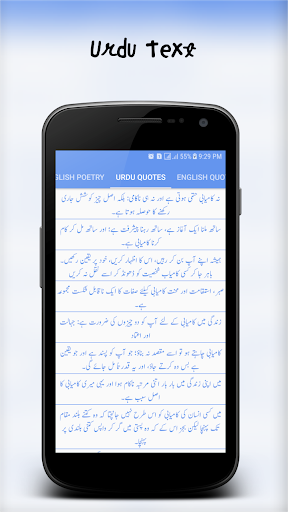 Urdu Text
54% 9:29 PM
GLISH POETRY URDU QUOTES ENGLISH QUO
نہ کامیابی حتمی ہوتی ہے اور نہ ہی ناکامی: بلکہ اصل چیز کوشش جاری
رکھنے کا حوصلہ ہوتا ہے۔
ساتھ ملنا ایک آغاز ہے، ساتھ رہنا پیشرفت ہے! اور ساتھ مل کر کام
کرنا کامیابی ہے
ہمیشہ اپنے آپ بن کر رہیں، اس کا اظہار کریں، خود پر یقین رکھیں۔
باہر جا کر کسی کامیاب شخصیت کو ڈھونڈ کر اسے نقل نہ کریں
صبر، استقامت اور محنت کامیابی کیلئے صفات کا ایک ناقابل شکست مجموعہ
ہے۔
زندگی میں کامیابی کے لئے آپ کو دو چیزوں کی ضرورت ہے: جہالت
اور اعتماد
کامیابی چاہتے ہو تو اسے مقصد نہ بناؤ؛ جو آپ کو پسند ہے اور جو یقین
ہے بس وہ کرتے جاؤ، اور یہ قدرتاً مل جائے گی۔
میں اپنی زندگی میں بار بار اتنی مرتبہ ناکام ہوا اور یہی میری کامیابی کا
اصل سبب ہے۔
میں کسی انسان کی کامیابی کو اس طرح نہیں جانچتا کہ وہ کتنے بلند مقام
تک پہنچا لیکن بجز اس کے کہ وہ پستی میں گر کر واپس کتنی بلندی پر
پہنچا۔